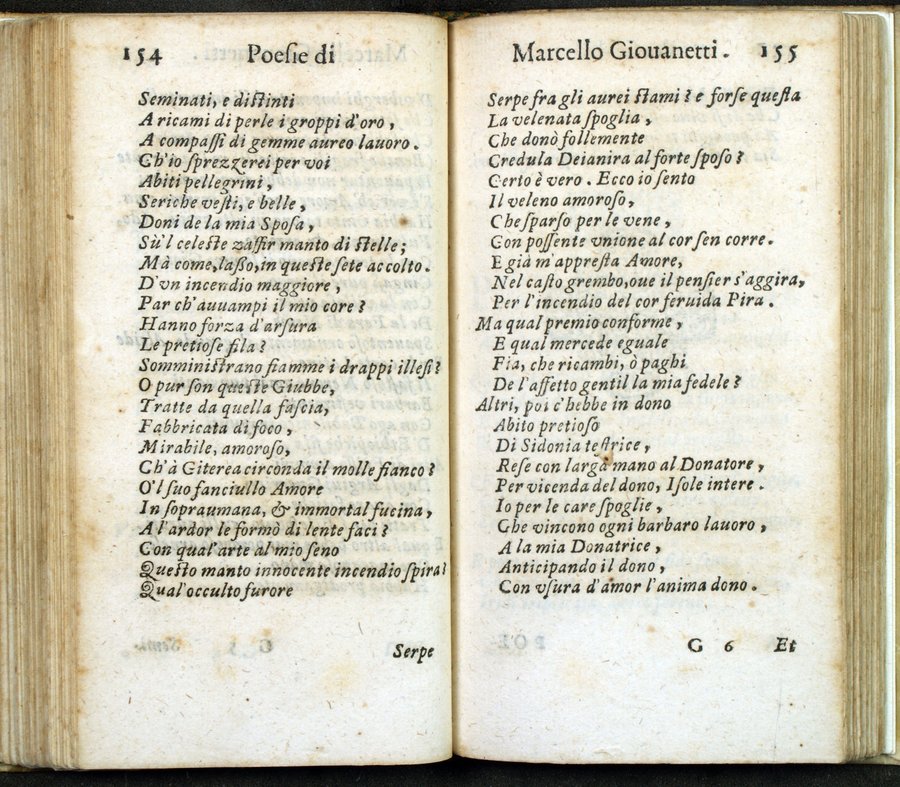 154 Poesie di
Seminati, e distinti
A ricami di perle i groppi d'oro,
A compassi di gemme aureo lauoro.
Ch'io sprezzerei per voi
Abiti pellegrini,
Seriche vesti, e belle,
Doni de la mia Sposa,
Sù'l celeste zaffir manto di stelle;
Mà come, lasso, in queste sete accolto.
D'vn incendio maggiore,
Par ch'auuampi il mio core?
Hanno forza d'arsura
Le pretiose fila?
Somministrano fiamme i drappi illesi?
O pur son queste Giubbe,
Tratte da quella fascia,
Fabbricata di foco,
Mirabile, amoroso,
Ch'à Citerea circonda il molle fianco?
O'l suo fanciullo Amore
In sopraumana, & immortal fucina,
A l'ardor le formò di lente faci?
Con qual'arte al mio seno
Questo manto innocente incendio spira?
Qual'occulto furore
Serpe
Marcello Giouanetti. 155
Serpe fra gli aurei stami? e forse questa
La velenata spoglia,
Che donò follemente
Credula Deianira al forte sposo?
Certo è vero. Ecco io sento
Il veleno amoroso,
Che sparso per le vene,
Con possente vnione al cor sen corre.
E già m'appresta Amore,
Nel casto grembo, oue il pensier s'aggira,
Per l'incendio del cor feruida Pira.
Ma qual premio conforme,
E qual mercede eguale
Fia, che ricambi, ò paghi
De l'affetto gentil la mia fedele?
Altri, poi c'hebbe in dono
Abito pretioso
Di Sidonia testrice,
Rese con larga mano al Donatore,
Per vicenda del dono, Isole intere.
Io per le care spoglie,
Che vincono ogni barbaro lauoro,
A la mia Donatrice,
Anticipando il dono,
Con vsura d'amor l'anima dono.
G 6 Et